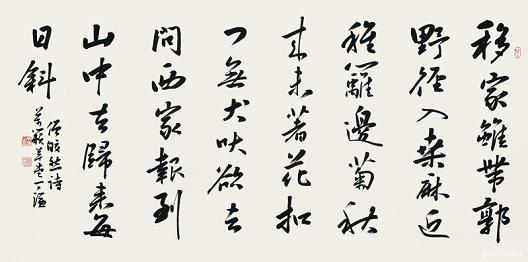 移家雖帶郭
野徑入桑麻近
種籬邊菊秋
來未著花扣
門無犬吠欲去
問西家報到
山中去歸來每
日斜
僧皎然詩